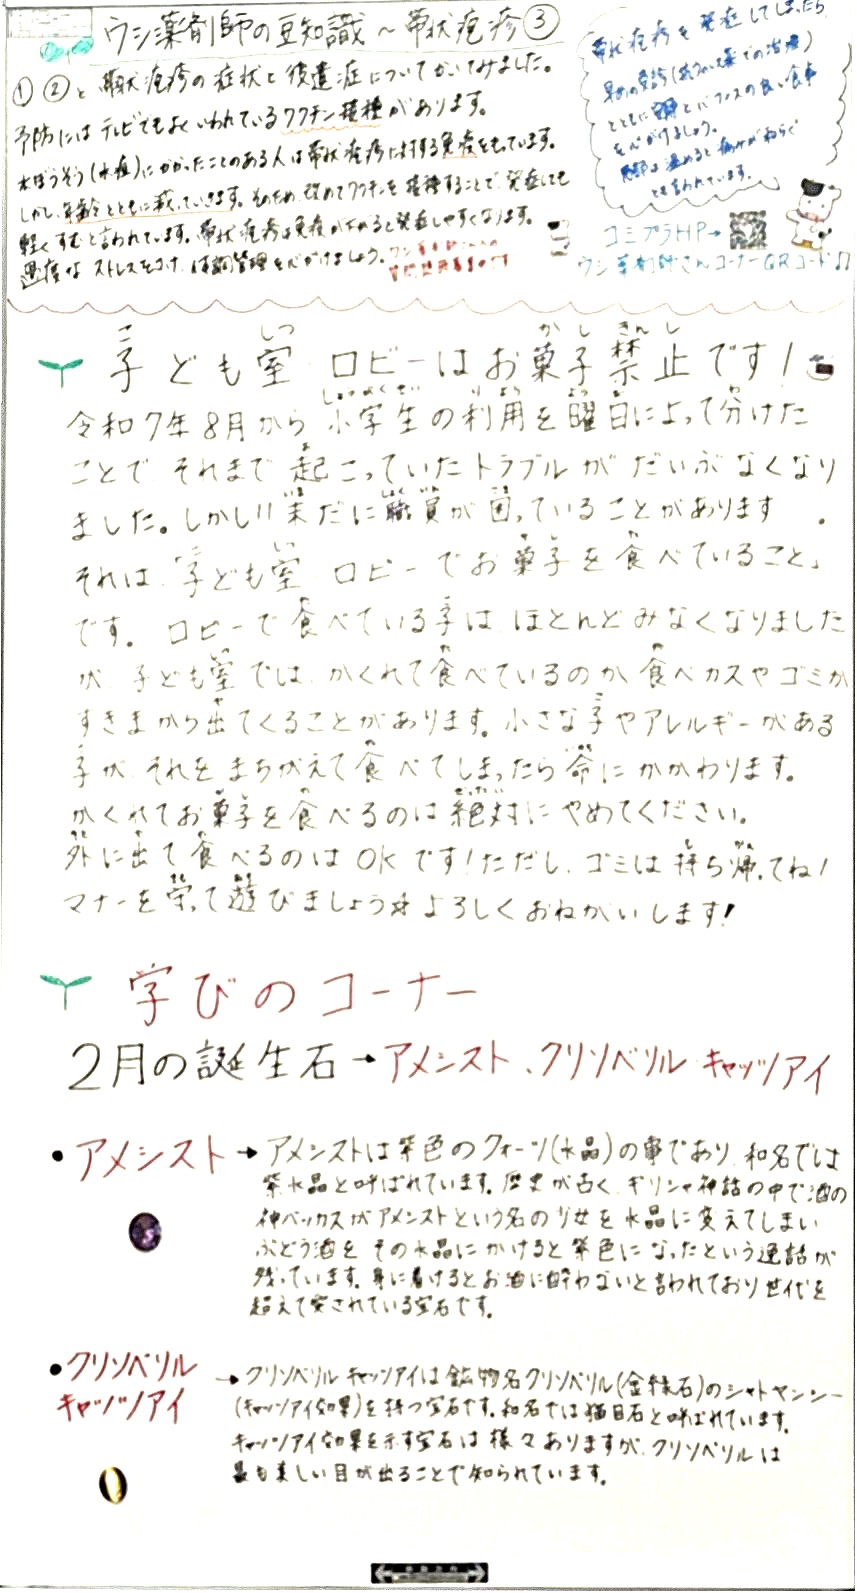 ウシ薬剤師の豆知識～帯状疱疹③
①②と帯状疱疹の症状と後遺症についてかいてみました。
予防にはテレビでもよくいわれているワクチン接種があります。
水ぼうそう(水痘)にかかったことのある人は帯状疱疹に対する免疫をもっています。
しかし、年齢とともに減っていきます。そのため、改めてワクチンを接種することで、発症しても
軽くすむと言われています。帯状疱疹は免疫が下がると発症しやすくなります。
過度なストレスをさけ、体調管理を心がけましょう。
帯状疱疹を発症してしまったら
早めの受診(抗ウィルス薬での治療)
とともに とバランスの良い食事
を心がけましょう。
患部は温めると痛みが和らぐ
とも言われています。
コミプラHP→
ウシ薬剤師さんコーナーQRコード♫
子ども室 ロビーはお菓子禁止です!
令和7年8月から 小学生の利用を曜日によって分けた
ことで それまで起こっていたトラブルが だいぶなくなり
ました。しかし!! 未だに職員が困っていることがあります 。
それは「子ども室 ロビーでお菓子を食べていること」
です。ロビーで食べている子は ほとんどみなくなりました
が 子ども室では かくれて食べているのか 食べカスやゴミが
すきまから出てくることがあります。小さな子やアレルギーがある
子が それをまちがえて食べてしまったら命にかかわります。
かくれてお菓子を食べるのは絶対にやめてください。
外に出て食べるのはOKです!ただし、ゴミは持ち帰ってね!
マナーを守って遊びましょう☆よろしくおねがいします!
学びのコーナー
2月の誕生石→アメシスト、クリソベリル キャッツアイ
• アメシスト → アメシストは紫色のクォーツ(水晶)の事であり、和名では
紫水晶と呼ばれています。歴史が古く、ギリシャ神話の中で酒の
神バッカスがアメシストという名の少女を水晶に変えてしまい
ぶどう酒を その水晶にかけると紫色になったという逸話が
残っています。身に着けるとお酒に酔わないと言われており 世代を
超えて愛されている宝石です。
• クリソベリル
キャッツアイ
→クリソベリル キャッツアイは鉱物名クリソベリル(金緑石)のシャトヤンシー
(キャッツアイ効果)を持つ宝石です。和名では猫目石と呼ばれています。
キャッツアイ効果を示す宝石は様々ありますが、クリソベリルは
最も美しい目が出ることで知られています。